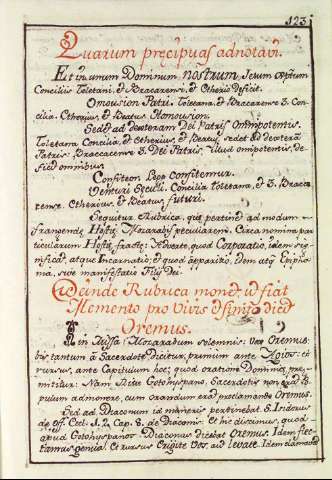 123
Quarum pręcipuas adnotavi.
Et in unum Dominum nostrum Jesum Christum
Conciliis Toletani, et Bracarensi, et Etherio deficit.
Omousion Patri. Toletana, et Bracarense 3. Con-
cilia. Etherius, et Beatus Homousion.
Sedet ad dexteram Dei Patris Omnipotentis.
Toletana Concilia, et Etherius, et Beatus sedet ad dexteram
Patris. Braccarense 3. Dei Patris. Illud omnipotentis, de-
ficit omnibus
Confiteor Lege Confitemur.
Venturi Sęculi. Concilia toletana, et 3. Bracca-
rense. Etherius, et Beatus futuri.
Sequitur Rubrica, quę pertinet ad modum
frangendę Hostię Mozarabę peculiarem. Circa nomina par-
ticularum Hostię fractę: Adverte, quod Corporatio, idem signi-
ficat, atque Incarnatio; et quod apparitio, idem atque Epipha-
nia, sive manifestatio Filij Dei.
Deinde Rubrica monet, ut fiat
Memento pro Vivis et simitdiced
Oremus.
In Missa Mozarabum solemni: Vox Oremus:
bis tantum à Sacerdote dicitur, primum ante Agios: et
rursus, ante Capitulum hoc; quod orationi Dominicę prę-
mittitur: Nam Ritu Gothohyspano, Sacerdotis non erat Po-
pulum admonere, cum orandum erat proclamante Oremus.
Sed ad Diaconum id muneris pertinebat S. Isidorus
de Off. Eccl. l. 2. Cap. 8. de Diaconis: Et hic discimus, quod
apud Gothohyspanos Diaconus dicebat Oremus. Idem flec-
tamus genua. Et rursus Erigite Vos, aut levate. Idem clamabat